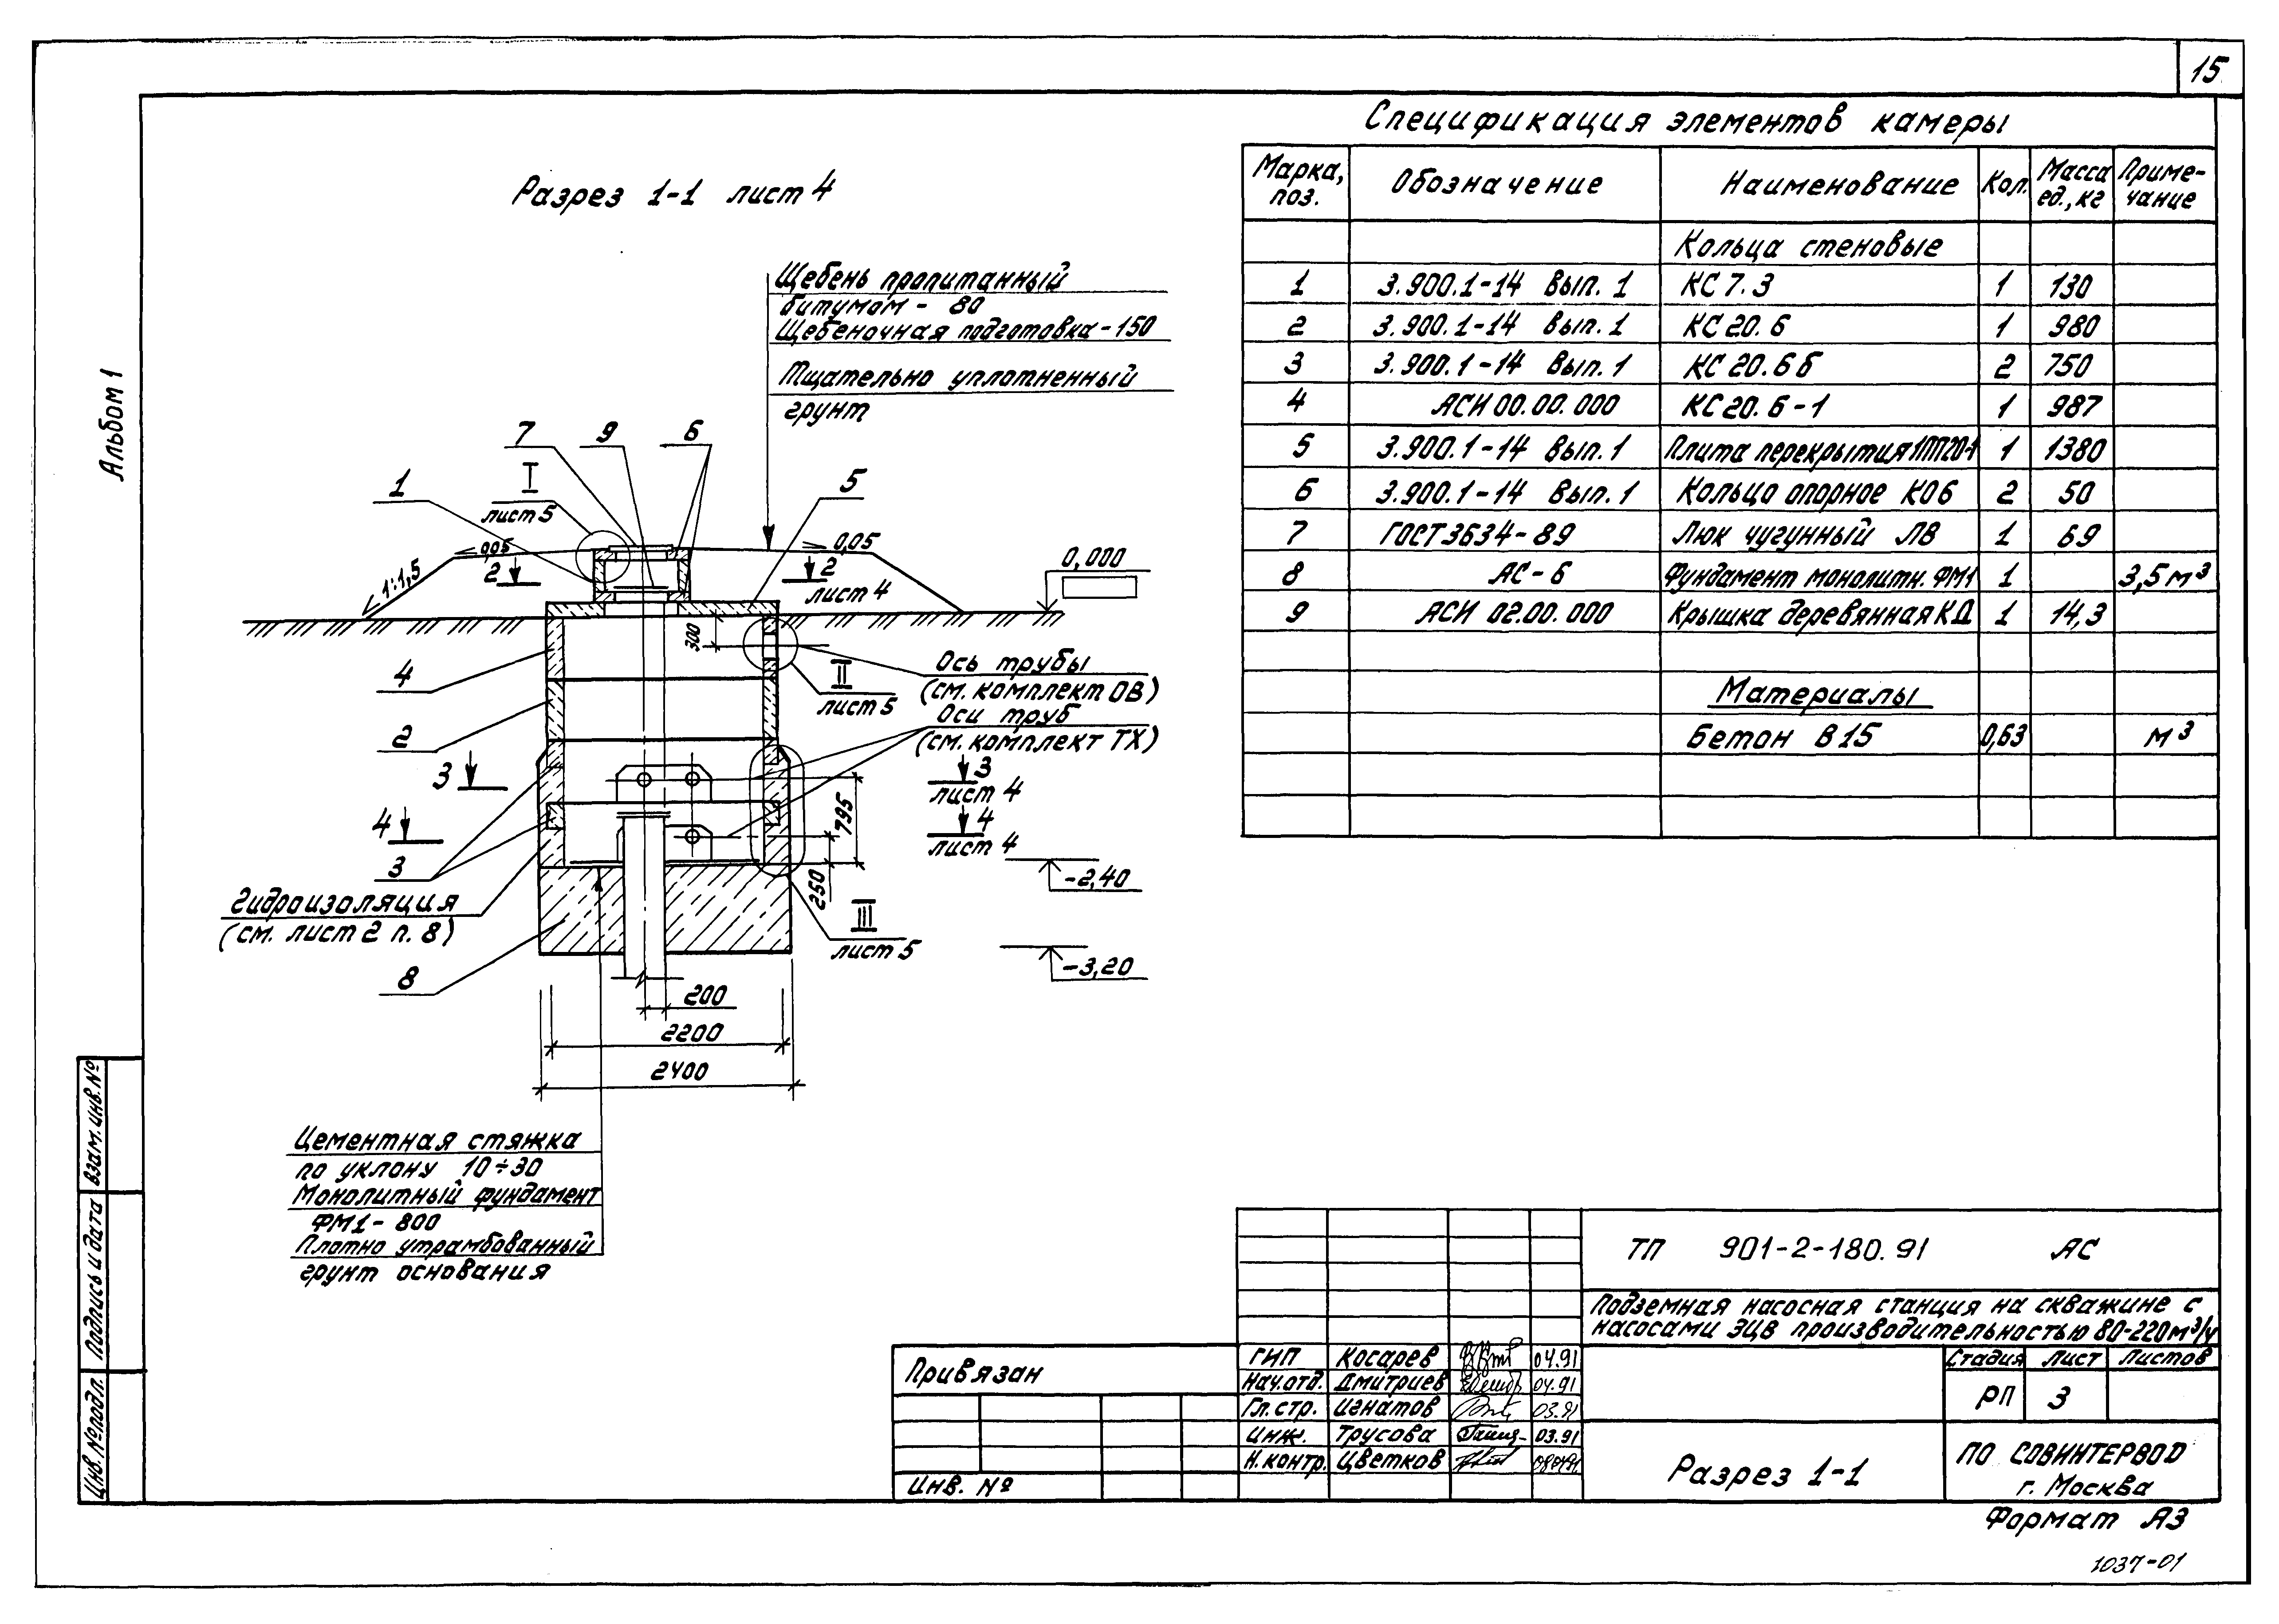 15
Альбом 1
Разрез 1-1 лист 4
Щебень пропитанный
битумом - 80
Щебеночная подготовка - 150
Тщательно уплотненный
грунт
7
9
6
1
I
лист 5
5
0,05
0,05
1:1,5
2
2
лист 4
0,000
300
4
2
II
лист 5
Ось трубы
(см. комплект ОВ)
Оси труб
(см. комплект ТХ)
3
3
лист 4
4
4
лист 4
795
250
3
-2,40
Гидроизоляция
(см. лист 2 п. 8)
III
лист 5
8
-3,20
200
2200
2400
Цементная стяжка
по уклону 10÷30
Монолитный фундамент
ФМ1 - 800
Плотно утрамбованный
грунт основания
Спецификация элементов камеры
Марка, поз. Обозначение Наименование Кол. Масса ед., кг Приме-чание
Кольца стеновые
1 3.900.1-14 Вып. 1 КС 7.3 1 130
2 3.900.1-14 Вып. 1 КС 20.6 1 980
3 3.900.1-14 Вып. 1 КС 20.6б 2 750
4 АСИ 00.00.000 КС 20.6-1 1 987
5 3.900.1-14 Вып. 1 Плита перекрытия 1ПП20-1 1 1380
6 3.900.1-14 Вып. 1 Кольцо опорное КО6 2 50
7 ГОСТ 3634-89 Люк чугунный ЛВ 1 69
8 АС-6 Фундамент монолитн. ФМ1 1 3,5 м³
9 АСИ 02.00.000 Крышка деревянная КД 1 14,3
Материалы
Бетон В15 0,63 м³
ТП 901-2-180.91 АС
Подземная насосная станция на скважине с
насосами ЭЦВ производительностью 80-220 м³/ч
Стадия Лист Листов
РП 3
Разрез 1-1
ПО СОВИНТЕРВОД
г. Москва
ГИП Косарев 04.91
Нач.отд. Дмитриев 04.91
Гл. стр. Игнатов 03.91
Инж. Трусова 03.91
Н.контр. Цветков
Привязан
Инв. №
Взам. инв. №
Подпись и дата
Инв. № подл.
Формат А3
1037-01